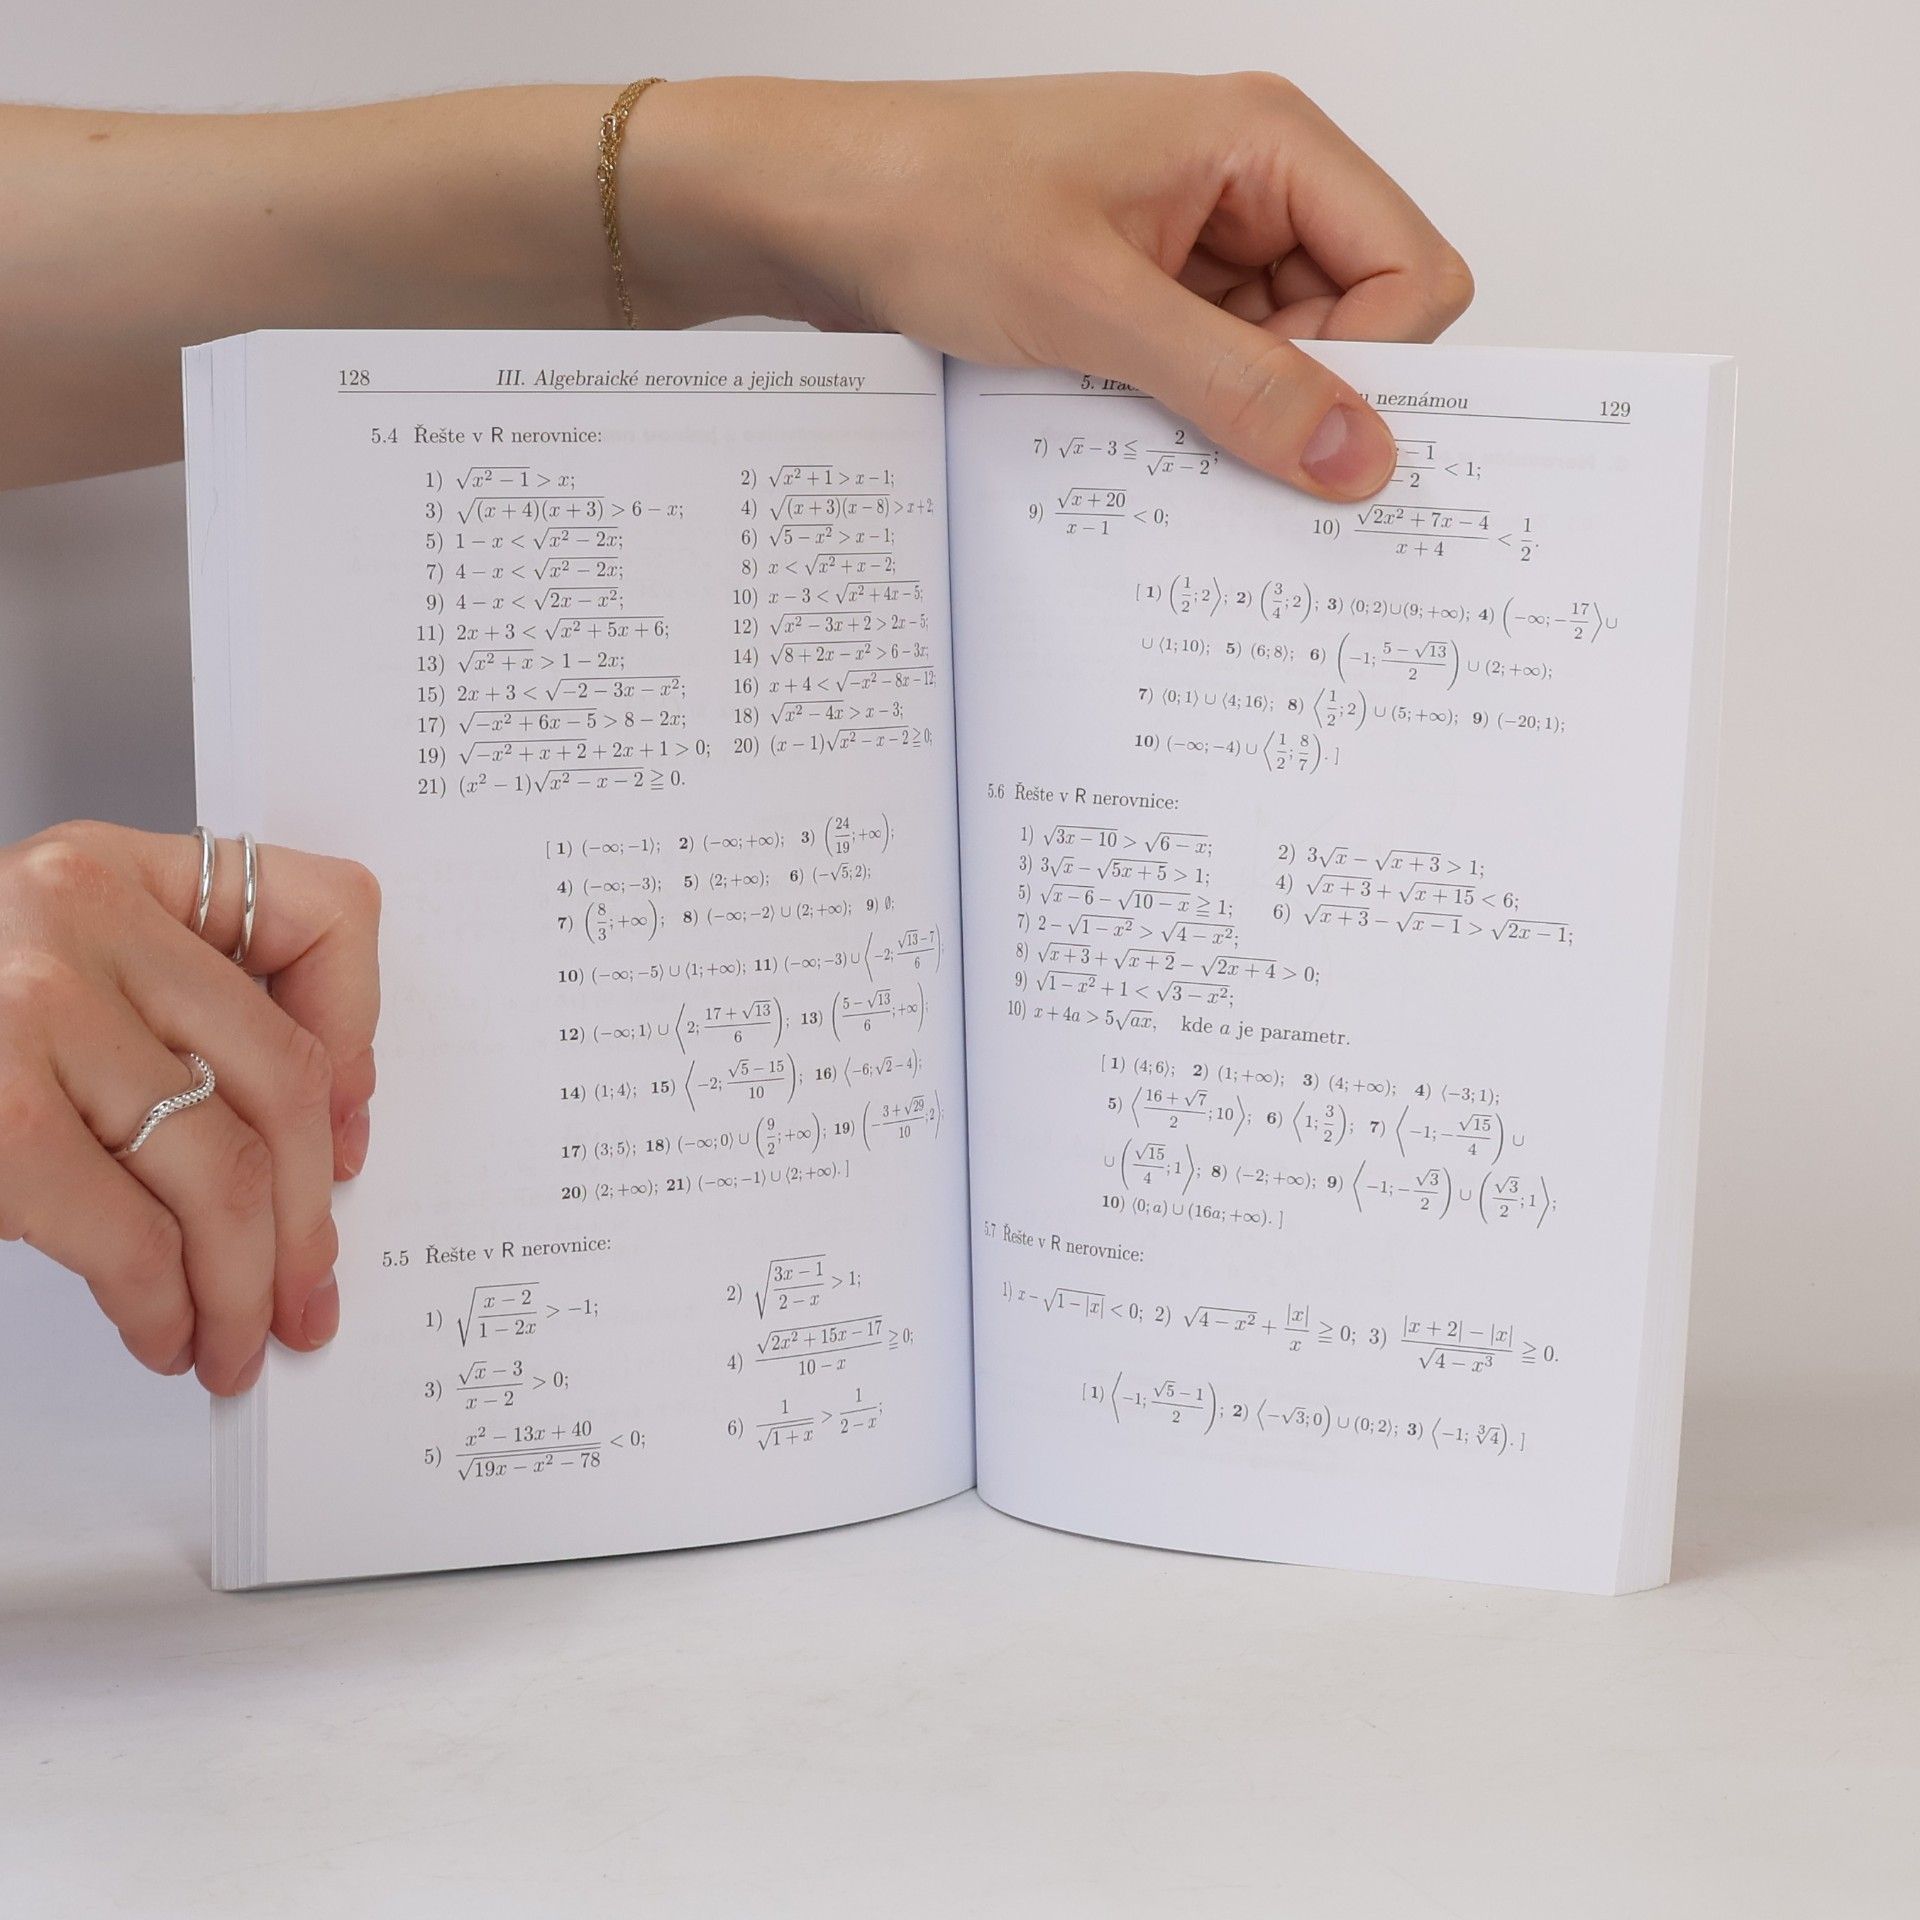 128 III. Algebraické nerovnice a jejich soustavy
5.4 Řešte v R nerovnice:
1) √(x² − 1) > x; 2) √(x² + 1) > x − 1;
3) √((x + 4)(x + 3)) > 6 − x; 4) √((x + 3)(x − 8)) > x + 2;
5) 1 − x < √(x² − 2x); 6) √(5 − x²) > x − 1;
7) 4 − x < √(x² − 2x); 8) x < √(x² + x − 2);
9) 4 − x < √(2x − x²); 10) x − 3 < √(x² + 4x − 5);
11) 2x + 3 < √(x² + 5x + 6); 12) √(x² − 3x + 2) > 2x − 5;
13) √(x² + x) > 1 − 2x; 14) √(8 + 2x − x²) > 6 − 3x;
15) 2x + 3 < √(−2 − 3x − x²); 16) x + 4 < √(−x² − 8x − 12);
17) √(−x² + 6x − 5) > 8 − 2x; 18) √(x² − 4x) > x − 3;
19) √(−x² + x + 2) + 2x + 1 > 0; 20) (x − 1)√(x² − x − 2) ≧ 0;
21) (x² − 1)√(x² − x − 2) ≧ 0.
[ 1) (−∞; −1⟩; 2) (−∞; +∞); 3) (24/19; +∞);
4) (−∞; −3⟩; 5) ⟨2; +∞); 6) ⟨−√5; 2);
7) (8/3; +∞); 8) (−∞; −2⟩ ∪ (2; +∞); 9) ∅;
10) (−∞; −5⟩ ∪ ⟨1; +∞); 11) (−∞; −3⟩ ∪ ⟨−2; (√13 − 7)/6);
12) (−∞; 1⟩ ∪ ⟨2; (17 + √13)/6); 13) ((5 − √13)/6; +∞);
14) (1; 4⟩; 15) ⟨−2; (√5 − 15)/10); 16) ⟨−6; √2 − 4);
17) (3; 5⟩; 18) (−∞; 0⟩ ∪ (9/2; +∞); 19) (−(3 + √29)/10; 2⟩;
20) ⟨2; +∞); 21) (−∞; −1⟩ ∪ ⟨2; +∞). ]
5.5 Řešte v R nerovnice:
1) √((x − 2)/(1 − 2x)) > −1; 2) √((3x − 1)/(2 − x)) > 1;
3) (√x − 3)/(x − 2) > 0; 4) √(2x² + 15x − 17)/(10 − x) ≧ 0;
5) (x² − 13x + 40)/√(19x − x² − 78) < 0; 6) 1/√(1 + x) > 1/(2 − x);
5. neznámou 129
7) √x − 3 ≦ 2/(√x − 2); − 1 − 2 < 1;
9) √(x + 20)/(x − 1) < 0; 10) √(2x² + 7x − 4)/(x + 4) < 1/2.
[ 1) (1/2; 2⟩; 2) (3/4; 2); 3) ⟨0; 2) ∪ (9; +∞); 4) (−∞; −17/2⟩ ∪
∪ ⟨1; 10); 5) (6; 8); 6) (−1; (5 − √13)/2) ∪ (2; +∞);
7) ⟨0; 1⟩ ∪ (4; 16⟩; 8) ⟨1/2; 2) ∪ (5; +∞); 9) ⟨−20; 1);
10) (−∞; −4) ∪ ⟨1/2; 8/7). ]
5.6 Řešte v R nerovnice:
1) √(3x − 10) > √(6 − x); 2) 3√x − √(x + 3) > 1;
3) 3√x − √(5x + 5) > 1; 4) √(x + 3) + √(x + 15) < 6;
5) √(x − 6) − √(10 − x) ≧ 1; 6) √(x + 3) − √(x − 1) > √(2x − 1);
7) 2 − √(1 − x²) > √(4 − x²);
8) √(x + 3) + √(x + 2) − √(2x + 4) > 0;
9) √(1 − x²) + 1 < √(3 − x²);
10) x + 4a > 5√(ax), kde a je parametr.
[ 1) (4; 6⟩; 2) (1; +∞); 3) (4; +∞); 4) ⟨−3; 1);
5) ⟨(16 + √7)/2; 10⟩; 6) ⟨1; 3/2); 7) ⟨−1; −√15/4) ∪
∪ (√15/4; 1⟩; 8) ⟨−2; +∞); 9) ⟨−1; −√3/2) ∪ (√3/2; 1⟩;
10) ⟨0; a) ∪ (16a; +∞). ]
5.7 Řešte v R nerovnice:
1) x − √(1 − |x|) < 0; 2) √(4 − x²) + |x|/x ≧ 0; 3) (|x + 2| − |x|)/√(4 − x³) ≧ 0.
[ 1) ⟨−1; (√5 − 1)/2); 2) ⟨−√3; 0) ∪ (0; 2⟩; 3) ⟨−1; ∛4). ]